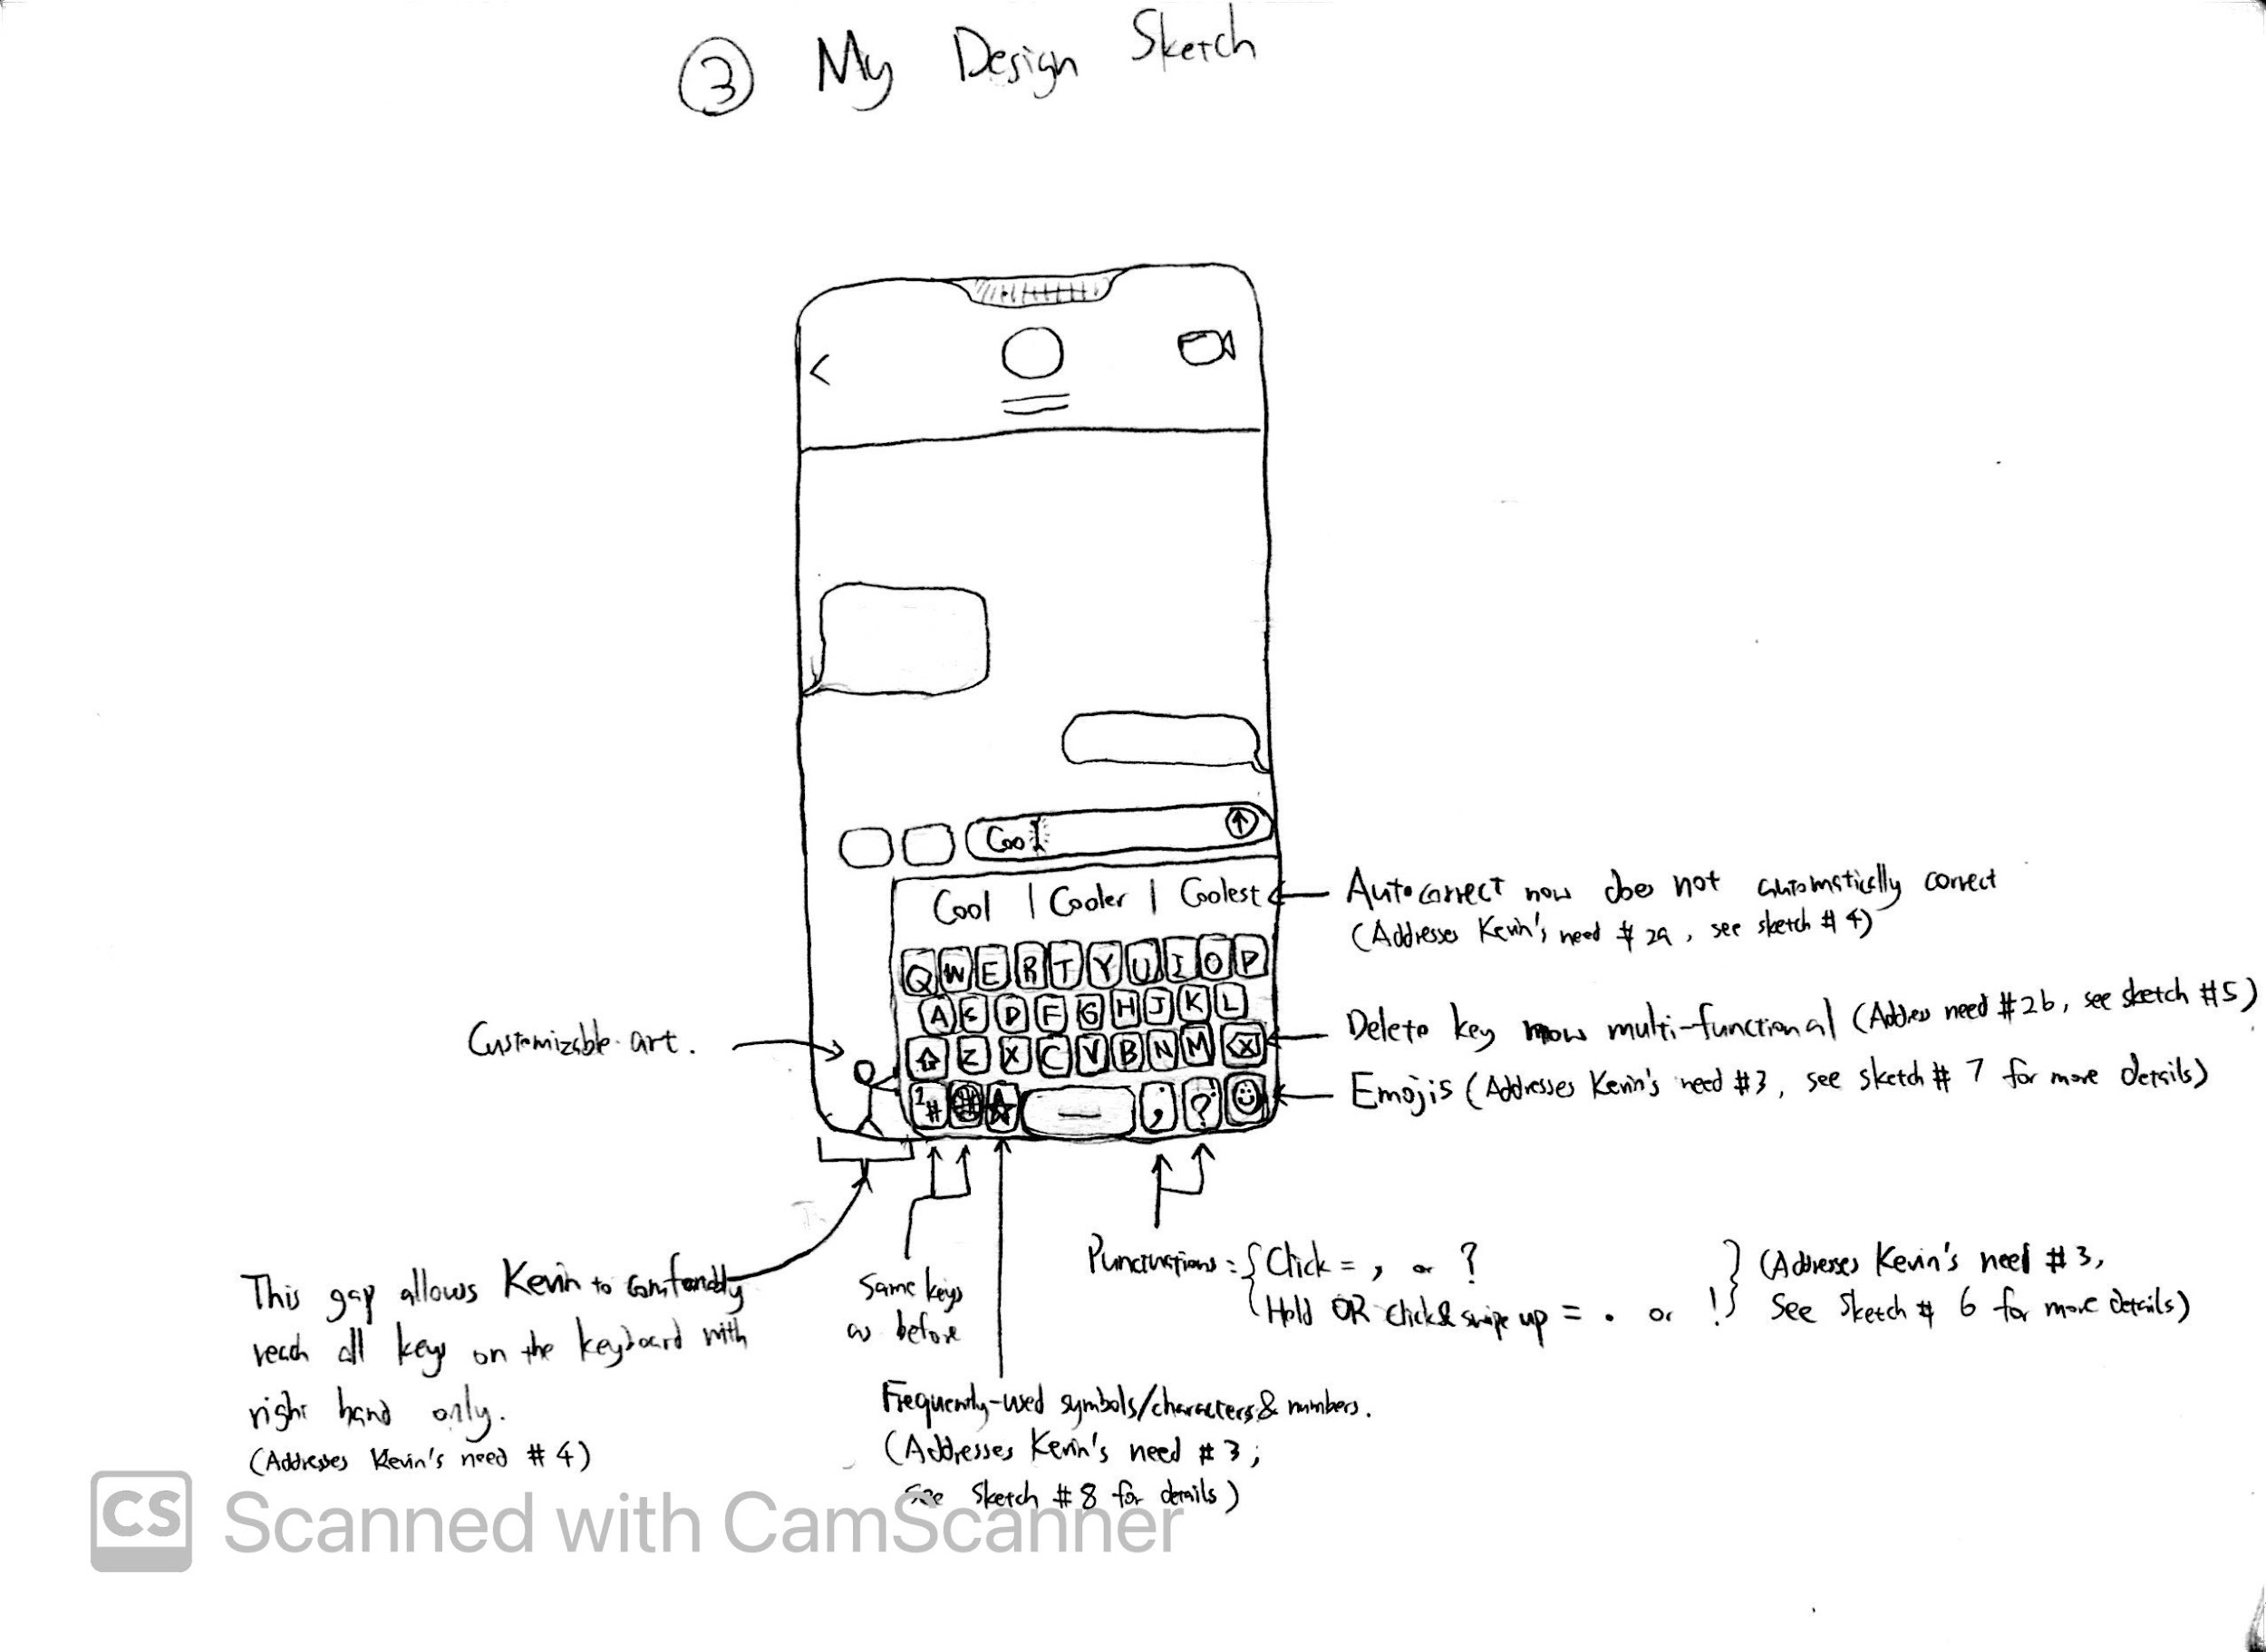 ③ My Design Sketch
Coo
Cool | Cooler | Coolest
Q W E R T Y U I O P
A S D F G H J K L
Z X C V B N M
1 #
, ?
Autocorrect now does not automatically correct
(Addresses Kevin's need # 2a, see sketch # 4)
Delete key now multi-functional (Address need #2b, see sketch #5)
Emojis (Addresses Kevin's need #3, see sketch # 7 for more details)
Customizable art.
This gap allows Kevin to comfortably
reach all keys on the keyboard with
right hand only.
(Addresses Kevin's need # 4)
Same keys
as before
Frequently-used symbols/characters & numbers.
(Addresses Kevin's need # 3;
see Sketch # 8 for details)
Punctuations: { Click = , or ?
Hold OR click & swipe up = . or ! }
(Addresses Kevin's need # 3,
See Sketch # 6 for more details)
CS Scanned with CamScanner